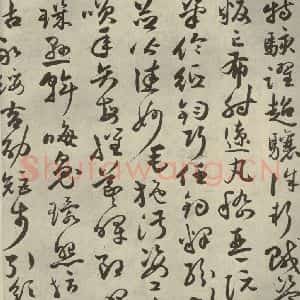 特駭躍超驤誅斬賊盜
叛亡布射遼丸嵇琴阮
筆倫紙鈞巧任釣釋紛
並皆佳妙毛施淑姿工
笑年矢每催曦暉朗
璣懸斡晦魄環照指
祜永綏吉劭矩步引領
Shufawang.cn